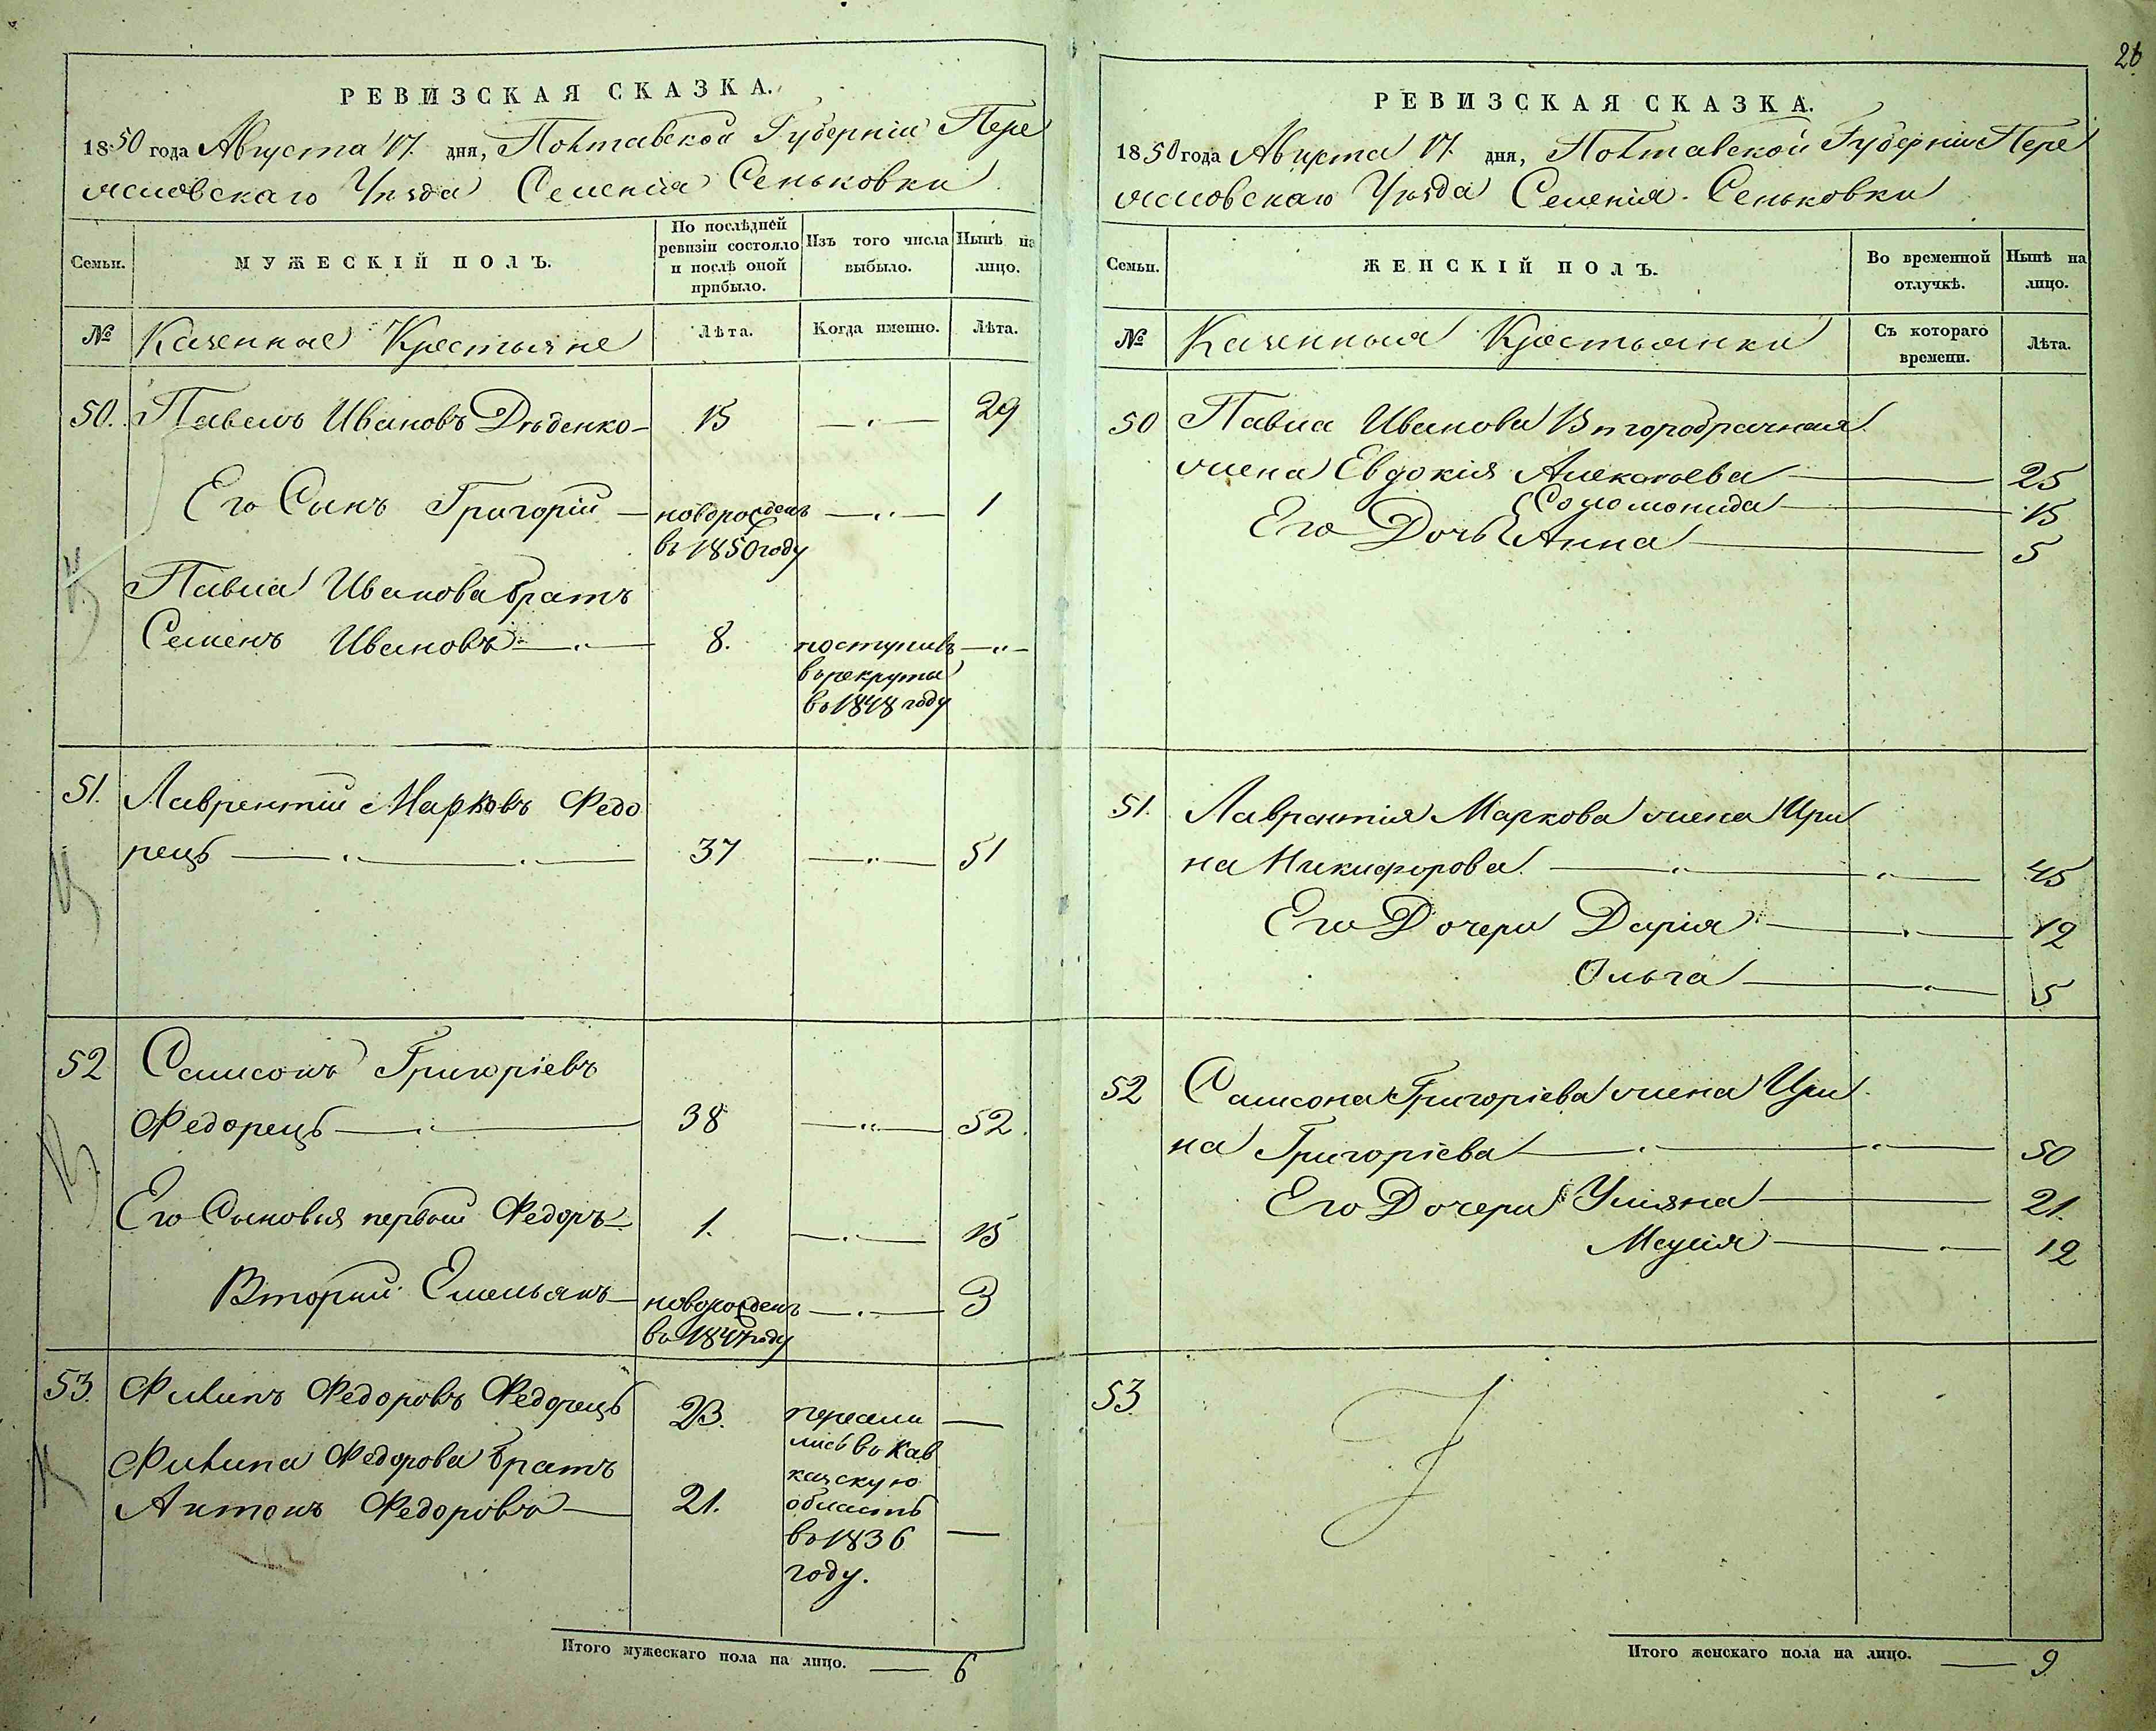 26
РЕВИЗСКАЯ СКАЗКА.
1850 года Августа 17. дня, Полтавской Губерніи Пере
яславскаго Уѣзда Селенія Сеньковки
Семьи.
МУЖЕСКІЙ ПОЛЪ.
По послѣдней ревизіи состояло и послѣ оной прибыло.
Изъ того числа выбыло.
Нынѣ на лицо.
№
Казенные Крестьяне
Лѣта.
Когда именно.
Лѣта.
50. Павелъ Ивановъ Дѣденко 15 29
Его Сынъ Григорій новорожденъ 1
въ 1850 году
Павла Иванова братъ
Семенъ Ивановъ 8. поступилъ
въ рекруты
въ 1848 году
51. Лаврентій Марковъ Федо
рецъ 37 51
52 Самсонъ Григоріевъ
Федорецъ 38 52.
Его Сыновья первый Федоръ 1. 15
Вторый Емельянъ новорожденъ 3
въ 1847 году
53. Филипъ Федоровъ Федорецъ 23. пересели
лись въ Кав
Филипа Федорова братъ казскую
Антонъ Федоровъ 21. область
въ 1836
году.
Итого мужескаго пола на лицо. 6
РЕВИЗСКАЯ СКАЗКА.
1850 года Августа 17. дня, Полтавской Губерніи Пере
яславскаго Уѣзда Селенія Сеньковки
Семьи.
ЖЕНСКІЙ ПОЛЪ.
Во временной отлучкѣ.
Нынѣ на лицо.
№
Казенныя Крестьянки
Съ котораго времени.
Лѣта.
50 Павла Иванова Второбрачная
жена Евдокія Алексѣева 25
Соломонида 15
Его Дочь Анна 5
51. Лаврентія Маркова жена Ири
на Никифорова 45
Его Дочери Дарія 12
Ольга 5
52 Самсона Григоріева жена Ири
на Григоріева 50
Его Дочери Уліяна 21.
12
53
Итого женскаго пола на лицо. 9